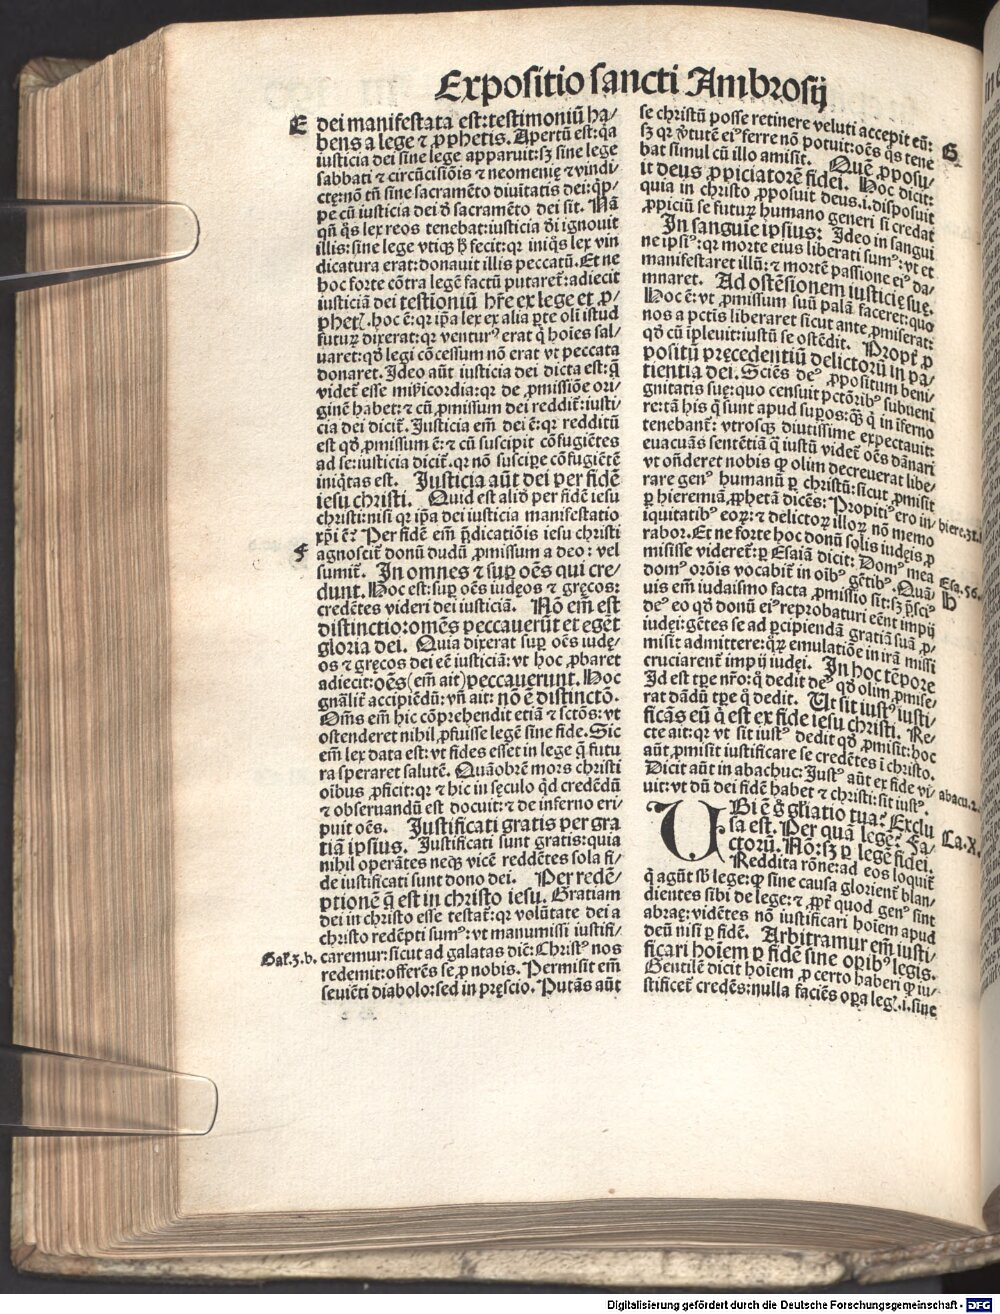 Expositio sancti Ambrosij
E
dei manifestata est: testimoniū ha⸗
bens a lege ⁊ ꝓphetis. Apertū est: ꝙ̄a
iusticia dei sine lege apparuit: sꝫ sine lege
sabbati ⁊ circūcisiōis ⁊ neomenię ⁊ vindi⸗
ctę: nō tn̄ sine sacramēto diuītatis dei: ꝗp⸗
pe cū iusticia dei ď sacramēto dei sit. Nā
qn̄ ꝗs lex reos tenebat: iusticia ďi ignouit
illis: sine lege vtiqꝫ ħ fecit: qꝛ iniqꝰs lex vin
dicatura erat: donauit illis peccatū. Et ne
hoc forte cōtra legē factū putaret᷑: adiecit
iusticiā dei testioniū hr̄e ex lege et ꝓ⸗
phetꝭ. hoc ē: qꝛ ip̄a lex ex alia ꝑte oli istud
futuꝝ dixerat: qꝛ venturꝰ erat ꝗ hoīes sal⸗
uaret: qď legi cōcessum nō erat vt peccata
donaret. Ideo aūt iusticia dei dicta est: ꝗ̄
videt᷑ esse miẜicordia: qꝛ de ꝓmissiōe ori⸗
ginē habet: ⁊ cū ꝓmissum dei reddit᷑: iusti⸗
cia dei dicit᷑. Justicia em̄ dei ē: qꝛ redditū
est qď ꝓmissum ē: ⁊ cū suscipit cōfugiētes
ad se: iusticia dicit᷑. qꝛ nō suscipe cōfugiētē
iniꝗtas est. Justicia aūt dei per fidē
iesu christi. Quid est aliď per fidē iesu
christi: nisi qꝛ ip̄a dei iusticia manifestatio
xp̄i ē? Per fidē em̄ p̄dicatiōis iesu christi
F
agnoscit᷑ donū dudū ꝓmissum a deo: vel
sumit᷑. In omnes ⁊ suꝑ oēs qui cre⸗
dunt. Hoc est: suꝑ oēs iudęos ⁊ gręcos:
credētes videri dei iusticiā. Nō em̄ est
distinctio: omēs peccauerūt et egēt
gloria dei. Quia dixerat suꝑ oēs iudę⸗
os ⁊ gręcos dei eē iusticiā: vt hoc ꝓbaret
adiecit: oēs (em̄ ait) peccauerunt. Hoc
gnālit᷑ accipiēdū: vn̄ ait: nō ē distinctō.
Om̄s em̄ hic cōprehendit etiā ⁊ sctōs: vt
ostenderet nihil ꝓfuisse legē sine fide. Sic
em̄ lex data est: vt fides esset in lege ꝗ̄ futu
ra speraret salutē. Quāobrē mors christi
oībus ꝓficit: qꝛ ⁊ hic in sęculo qd credēdū
⁊ obseruandū est docuit: ⁊ de inferno eri⸗
puit oēs. Justificati gratis per gra
tiā ipsius. Justificati sunt gratis: quia
nihil operātes neqꝫ vicē reddētes sola fi⸗
de iustificati sunt dono dei. Per redē⸗
ptionē ꝗ̄ est in christo iesu. Gratiam
dei in christo esse testat᷑: qꝛ volūtate dei a
christo redēpti sumꝰ: vt manumissi iustifi⸗
Gal. 3. b.
caremur: sicut ad galatas dic̄: Christꝰ nos
redemit: offerēs se ꝓ nobis. Permisit em̄
seuiēti diabolo: sed in pręscio. Putās aūt
se christū posse retinere veluti accepit eū:
G
sꝫ qꝛ v̓tutē eiꝰ ferre nō potuit: oēs ꝗs tene
bat simul cū illo amisit. Quē ꝓposu⸗
it deus ꝓpiciatorē fidei. Hoc dicit:
quia in christo ꝓposuit deus .i. disposuit
ꝓpiciū se futuꝝ humano generi si credat
In sanguīe ipsius: Ideo in sangui
ne ipsiꝰ: qꝛ morte eius liberati sumꝰ: vt et
manifestaret illū: ⁊ mortē passione eiꝰ da⸗
mnaret. Ad ostēsionem iusticię suę.
Hoc ē: vt ꝓmissum suū palā faceret: quo
nos a pctīs liberaret sicut ante ꝓmiserat:
qď cū īpleuit: iustū se ostēdit. Propt᷑ ꝓ
positū pręcedentiū delictorū in pa⸗
tientia dei. Sciēs deꝰ ꝓpositum beni⸗
gnitatis suę: quo censuit pctōribꝰ subueni
re: tā his ꝗ sunt apud suꝑos: ꝙ̄ꝫ ꝗ in īferno
tenebant᷑: vtrosqꝫ diutissime expectauit:
euacuās sentētiā ꝗ iustū videt᷑ oēs dānari
vt on̄deret nobis ꝙ olim decreuerat libe⸗
rare genꝰ humanū ꝑ christū: sicut ꝓmisit
ꝑ hieremiā ꝓphetā dicēs: Propitiꝰ ero in⸗
hiere. 31. f
iquitatibꝰ eoꝝ: ⁊ delictoꝝ illoꝝ nō memo
rabor. Et ne forte hoc donū solis iudęis ꝓ
misisse videret᷑: ꝑ Esaiā dicit: Domꝰ mea
Esa. 56.
domꝰ orōis vocabit᷑ in oībꝰ gētibꝰ. Quā⸗
H
uis em̄ iudaismo facta ꝓmissio sit: sꝫ p̄sciꝰ
deꝰ eo qď donū eiꝰ reprobaturi eēnt impij
iudei: gētes se ad ꝑcipiendā gratiā suā ꝓ⸗
misit admittere: ꝗꝝ emulatiōe in irā missi
cruciarent᷑ impij iudęi. In hoc tēpore
Id est tp̄e nr̄o: ꝗ dedit deꝰ qď olim ꝓmise⸗
rat dādū tp̄e ꝗ dedit. Ut sit iustꝰ iusti⸗
ficās eū ꝗ est ex fide iesu christi. Re⸗
cte ait: qꝛ vt sit iustꝰ dedit qď ꝓmisit: hoc
aūt ꝓmisit iustificare se credētes ī christo.
Dicit aūt in abachuc: Justꝰ aūt ex fide vi⸗
abacu. 2.
uit: vt dū dei fidē habet ⁊ christi: sit iustꝰ.
UBi ē ḡ gl̄iatio tua? Exclu
sa est. Per quā legē? Fa⸗
Ca. X.
ctorū. Nō: sꝫ ꝑ legē fidei.
Reddita rōne: ad eos loquit᷑
ꝗ agūt sb̓ lege: ꝙ sine causa glorient᷑ blan⸗
dientes sibi de lege: ⁊ ꝓpt᷑ quod genꝰ sint
abraę: vidētes nō iustificari hoīem apud
deū nisi ꝑ fidē. Arbitramur em̄ iusti⸗
ficari hoīem ꝑ fidē sine oꝑibꝰ legis.
Gentilē dicit hoīem ꝓ certo haberi ꝙ iu⸗
stificet᷑ credēs: nulla faciēs oꝑa legꝭ .i. sine
Digitalisierung gefördert durch die Deutsche Forschungsgemeinschaft - DFG